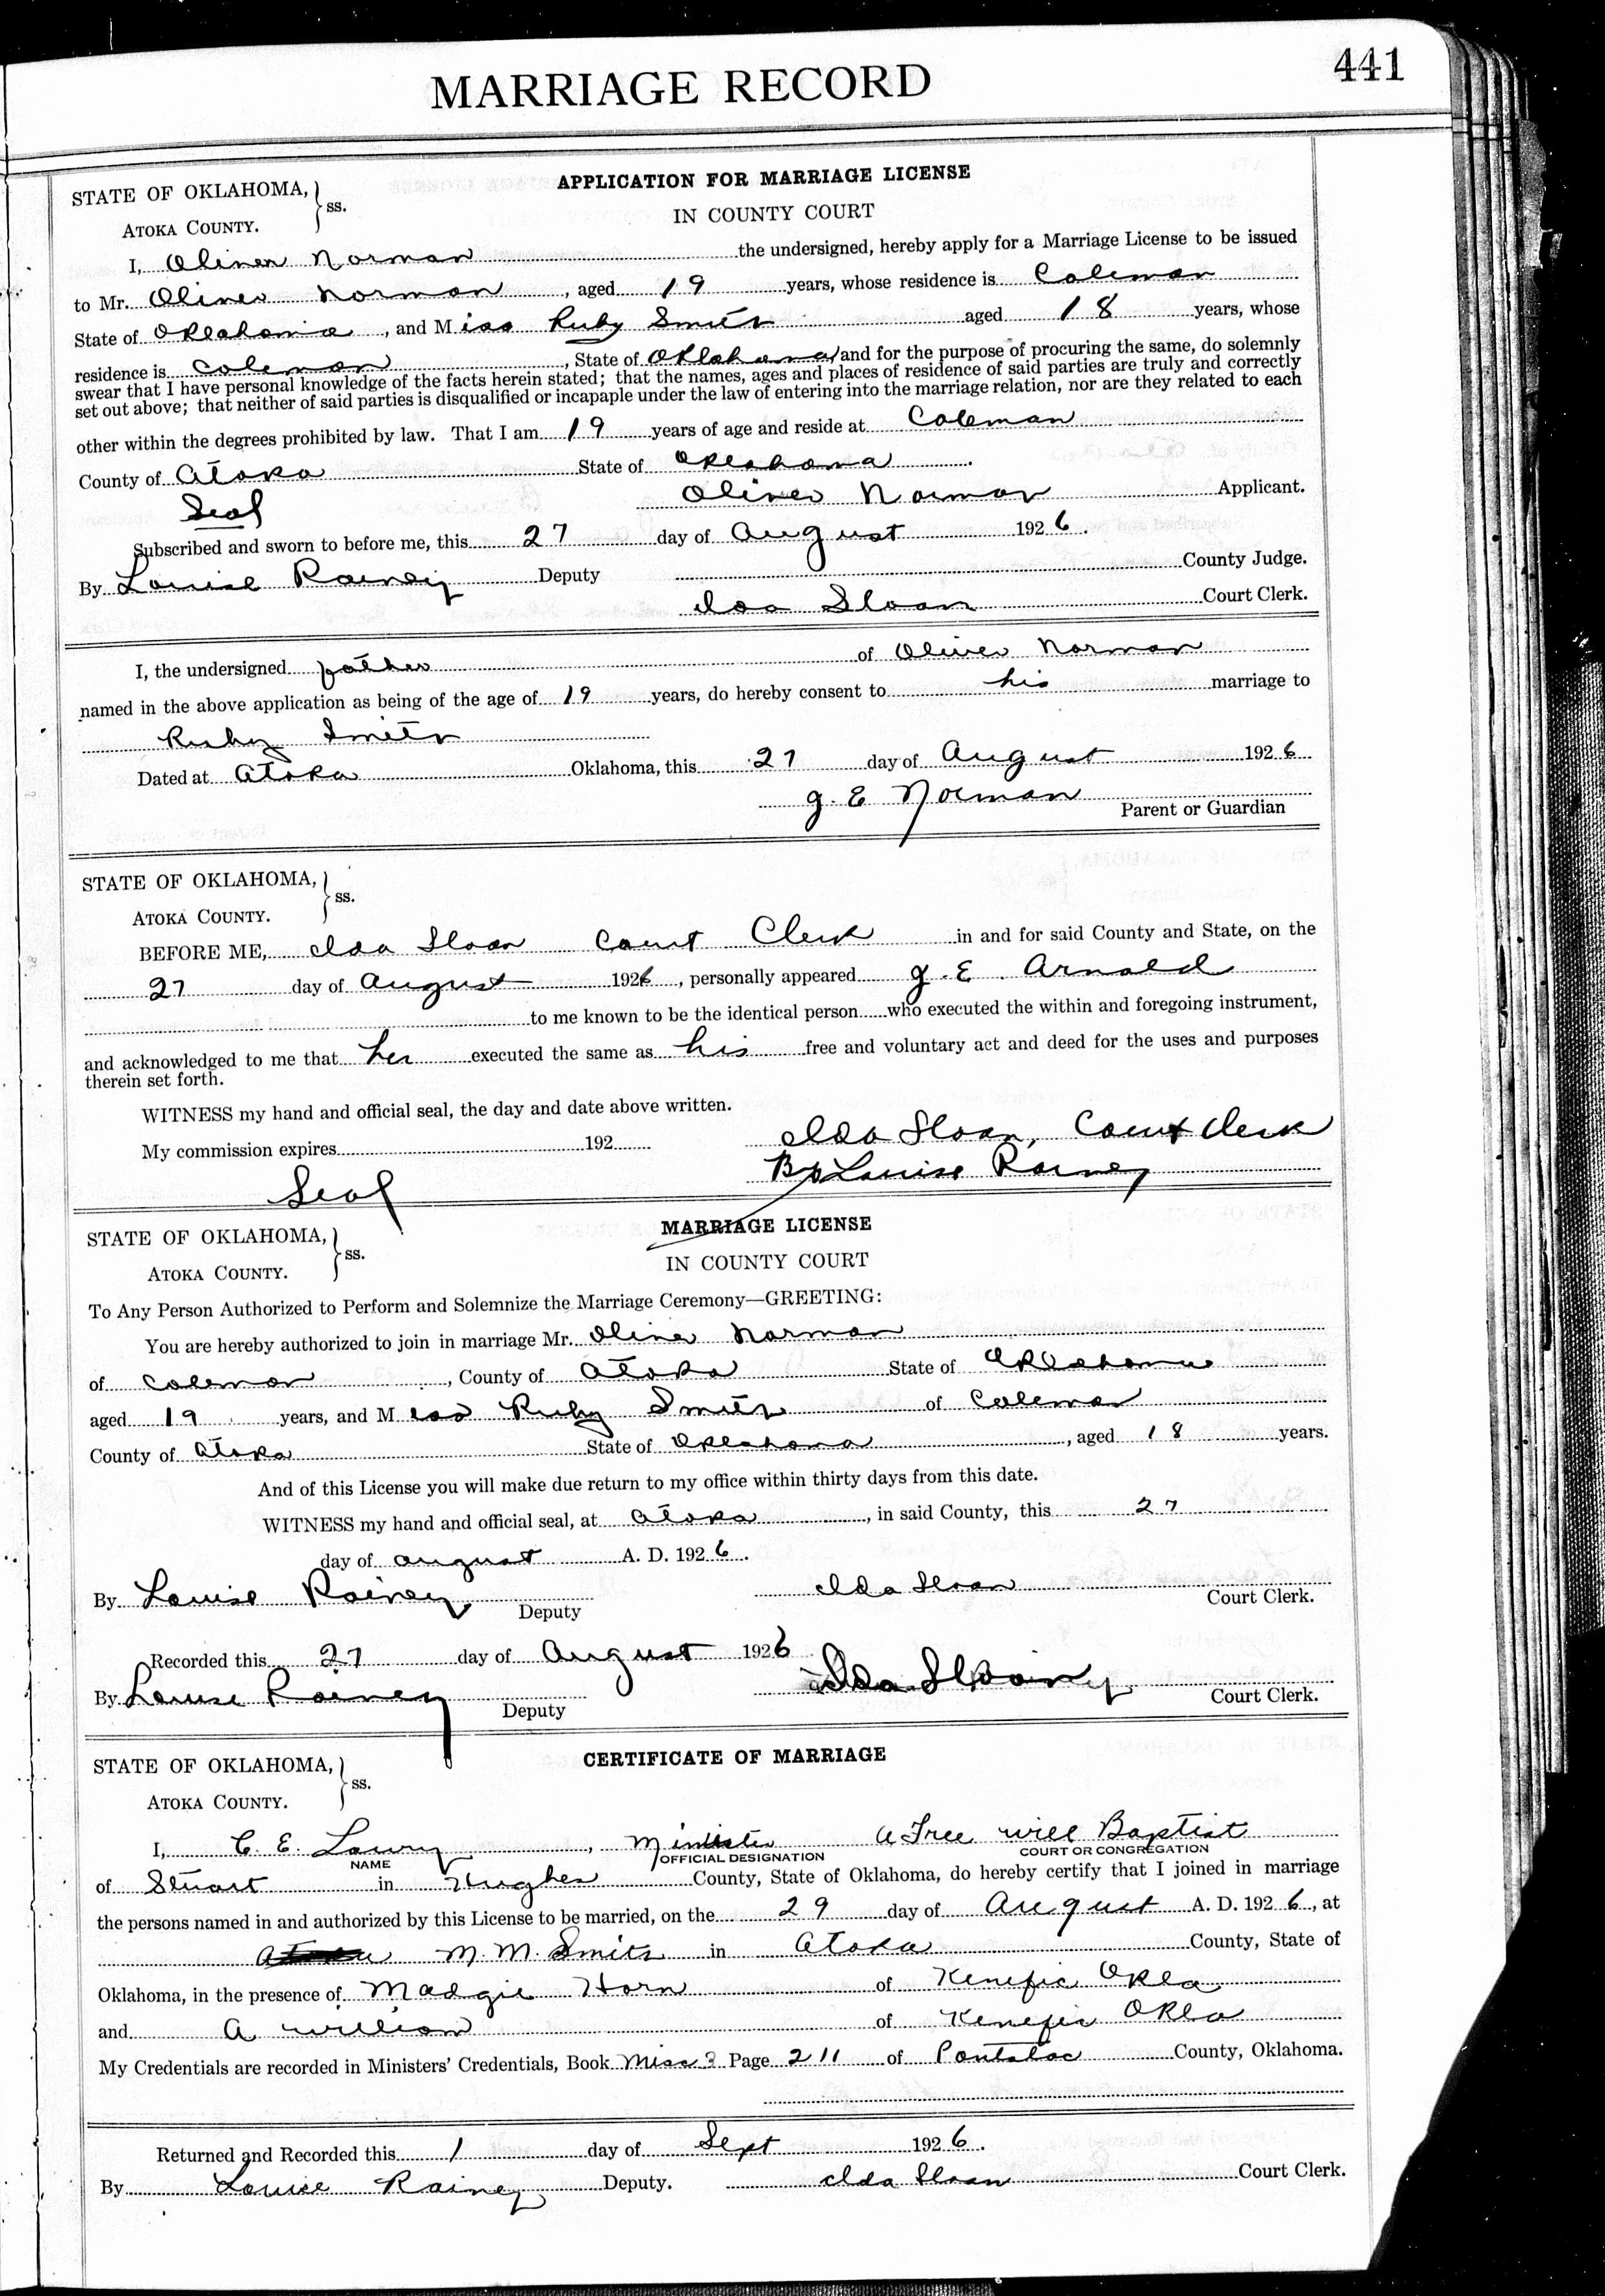 441
MARRIAGE RECORD
STATE OF OKLAHOMA, ss.
ATOKA COUNTY.
APPLICATION FOR MARRIAGE LICENSE
IN COUNTY COURT
I, Oliver Norman the undersigned, hereby apply for a Marriage License to be issued
to Mr. Oliver Norman, aged 19 years, whose residence is Coleman
State of Oklahoma, and Miss Ruby Smith aged 18 years, whose
residence is Coleman, State of Oklahoma and for the purpose of procuring the same, do solemnly
swear that I have personal knowledge of the facts herein stated; that the names, ages and places of residence of said parties are truly and correctly
set out above; that neither of said parties is disqualified or incapaple under the law of entering into the marriage relation, nor are they related to each
other within the degrees prohibited by law. That I am 19 years of age and reside at Coleman
County of Atoka State of Oklahoma.
Seal Oliver Norman Applicant.
Subscribed and sworn to before me, this 27 day of August 1926.
By Louise Rainey Deputy County Judge.
Ida Sloan Court Clerk.
I, the undersigned father of Oliver Norman
named in the above application as being of the age of 19 years, do hereby consent to his marriage to
Ruby Smith
Dated at Atoka Oklahoma, this 27 day of August 1926
G. E Norman
Parent or Guardian
STATE OF OKLAHOMA, ss.
ATOKA COUNTY.
BEFORE ME, Ida Sloan Court Clerk in and for said County and State, on the
27 day of August 1926, personally appeared G. E. Arnold
to me known to be the identical person who executed the within and foregoing instrument,
and acknowledged to me that her executed the same as his free and voluntary act and deed for the uses and purposes
therein set forth.
WITNESS my hand and official seal, the day and date above written.
My commission expires 192 Ida Sloan, Court Clerk
Seal By Louise Rainey
STATE OF OKLAHOMA, ss.
ATOKA COUNTY.
MARRIAGE LICENSE
IN COUNTY COURT
To Any Person Authorized to Perform and Solemnize the Marriage Ceremony—GREETING:
You are hereby authorized to join in marriage Mr. Oliver Norman
of Coleman, County of Atoka State of Oklahoma
aged 19 years, and Miss Ruby Smith of Coleman
County of Atoka State of Oklahoma, aged 18 years.
And of this License you will make due return to my office within thirty days from this date.
WITNESS my hand and official seal, at Atoka, in said County, this 27
day of August A. D. 1926.
By Louise Rainey Deputy Ida Sloan Court Clerk.
Recorded this 27 day of August 1926
By Louise Rainey Deputy Ida Sloan Court Clerk.
STATE OF OKLAHOMA, ss.
ATOKA COUNTY.
CERTIFICATE OF MARRIAGE
I, C. E. Lowry, Minister A Free will Baptist
NAME OFFICIAL DESIGNATION COURT OR CONGREGATION
of Stuart in Hughes County, State of Oklahoma, do hereby certify that I joined in marriage
the persons named in and authorized by this License to be married, on the 29 day of August A. D. 1926, at
M. M. Smith in Atoka County, State of
Oklahoma, in the presence of Madgie Horn of Kenefic Okla
and A of Kenefic Okla
My Credentials are recorded in Ministers' Credentials, Book Misc 3 Page 211 of Pontotoc County, Oklahoma.
Returned and Recorded this 1 day of Sept 1926.
By Louise Rainey Deputy. Ida Sloan Court Clerk.